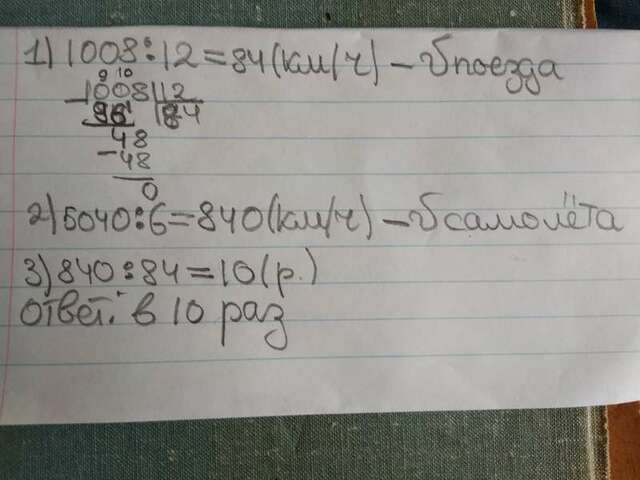 1) 1008:12=84(км/ч) – v поезда
9 10
1008 12
96 84
48
-48
0
2) 5040:6=840(км/ч) – v самолёта
3) 840:84=10(р.)
Ответ: в 10 раз